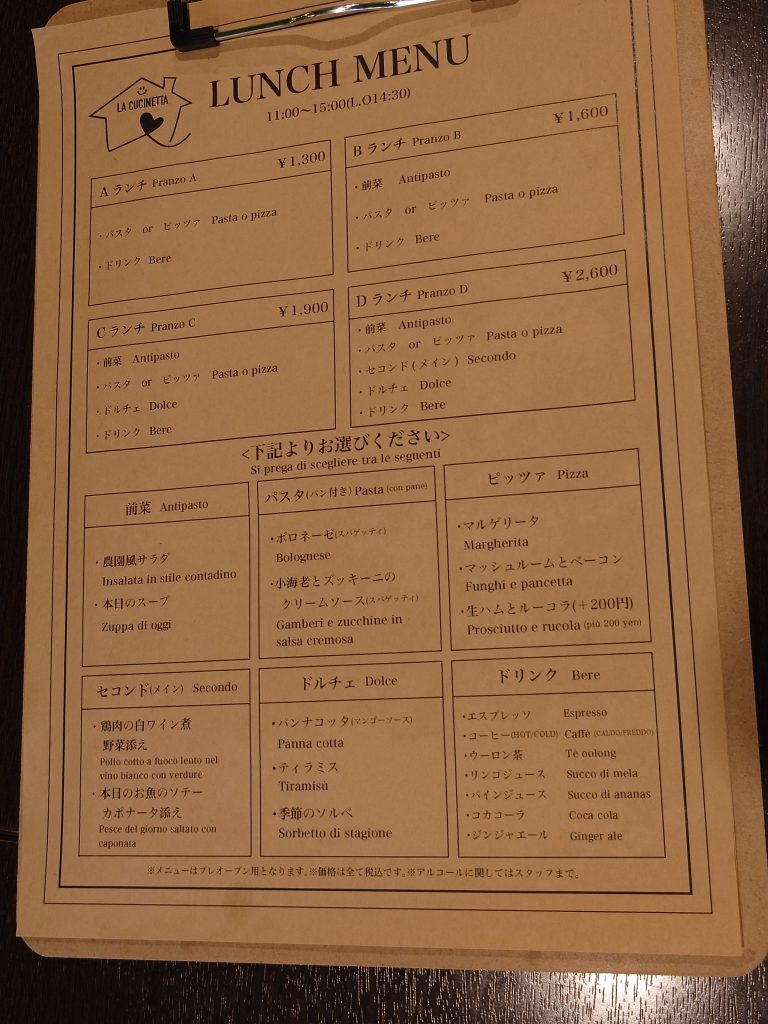 LA CUCINETTA
LUNCH MENU
11:00〜15:00(L.O14:30)
Aランチ Pranzo A ¥1,300
・パスタ or ピッツァ Pasta o pizza
・ドリンク Bere
Bランチ Pranzo B ¥1,600
・前菜 Antipasto
・パスタ or ピッツァ Pasta o pizza
・ドリンク Bere
Cランチ Pranzo C ¥1,900
・前菜 Antipasto
・パスタ or ピッツァ Pasta o pizza
・ドルチェ Dolce
・ドリンク Bere
Dランチ Pranzo D ¥2,600
・前菜 Antipasto
・パスタ or ピッツァ Pasta o pizza
・セコンド(メイン) Secondo
・ドルチェ Dolce
・ドリンク Bere
<下記よりお選びください>
Si prega di scegliere tra le seguenti
前菜 Antipasto
・農園風サラダ
Insalata in stile contadino
・本日のスープ
Zuppa di oggi
パスタ(パン付き) Pasta (con pane)
・ボロネーゼ(スパゲッティ)
Bolognese
・小海老とズッキーニの
クリームソース(スパゲッティ)
Gamberi e zucchine in
salsa cremosa
ピッツァ Pizza
・マルゲリータ
Margherita
・マッシュルームとベーコン
Funghi e pancetta
・生ハムとルーコラ(+200円)
Prosciutto e rucola (più 200 yen)
セコンド(メイン) Secondo
・鶏肉の白ワイン煮
野菜添え
Pollo cotto a fuoco lento nel
vino bianco con verdure
・本日のお魚のソテー
カポナータ添え
Pesce del giorno saltato con
caponata
ドルチェ Dolce
・パンナコッタ(マンゴーソース)
Panna cotta
・ティラミス
Tiramisù
・季節のソルベ
Sorbetto di stagione
ドリンク Bere
・エスプレッソ Espresso
・コーヒー(HOT/COLD) Caffè (CALDO/FREDDO)
・ウーロン茶 Tè oolong
・リンゴジュース Succo di mela
・パインジュース Succo di ananas
・コカコーラ Coca cola
・ジンジャエール Ginger ale
※メニューはプレオープン用となります。※価格は全て税込です。※アルコールに関してはスタッフまで。